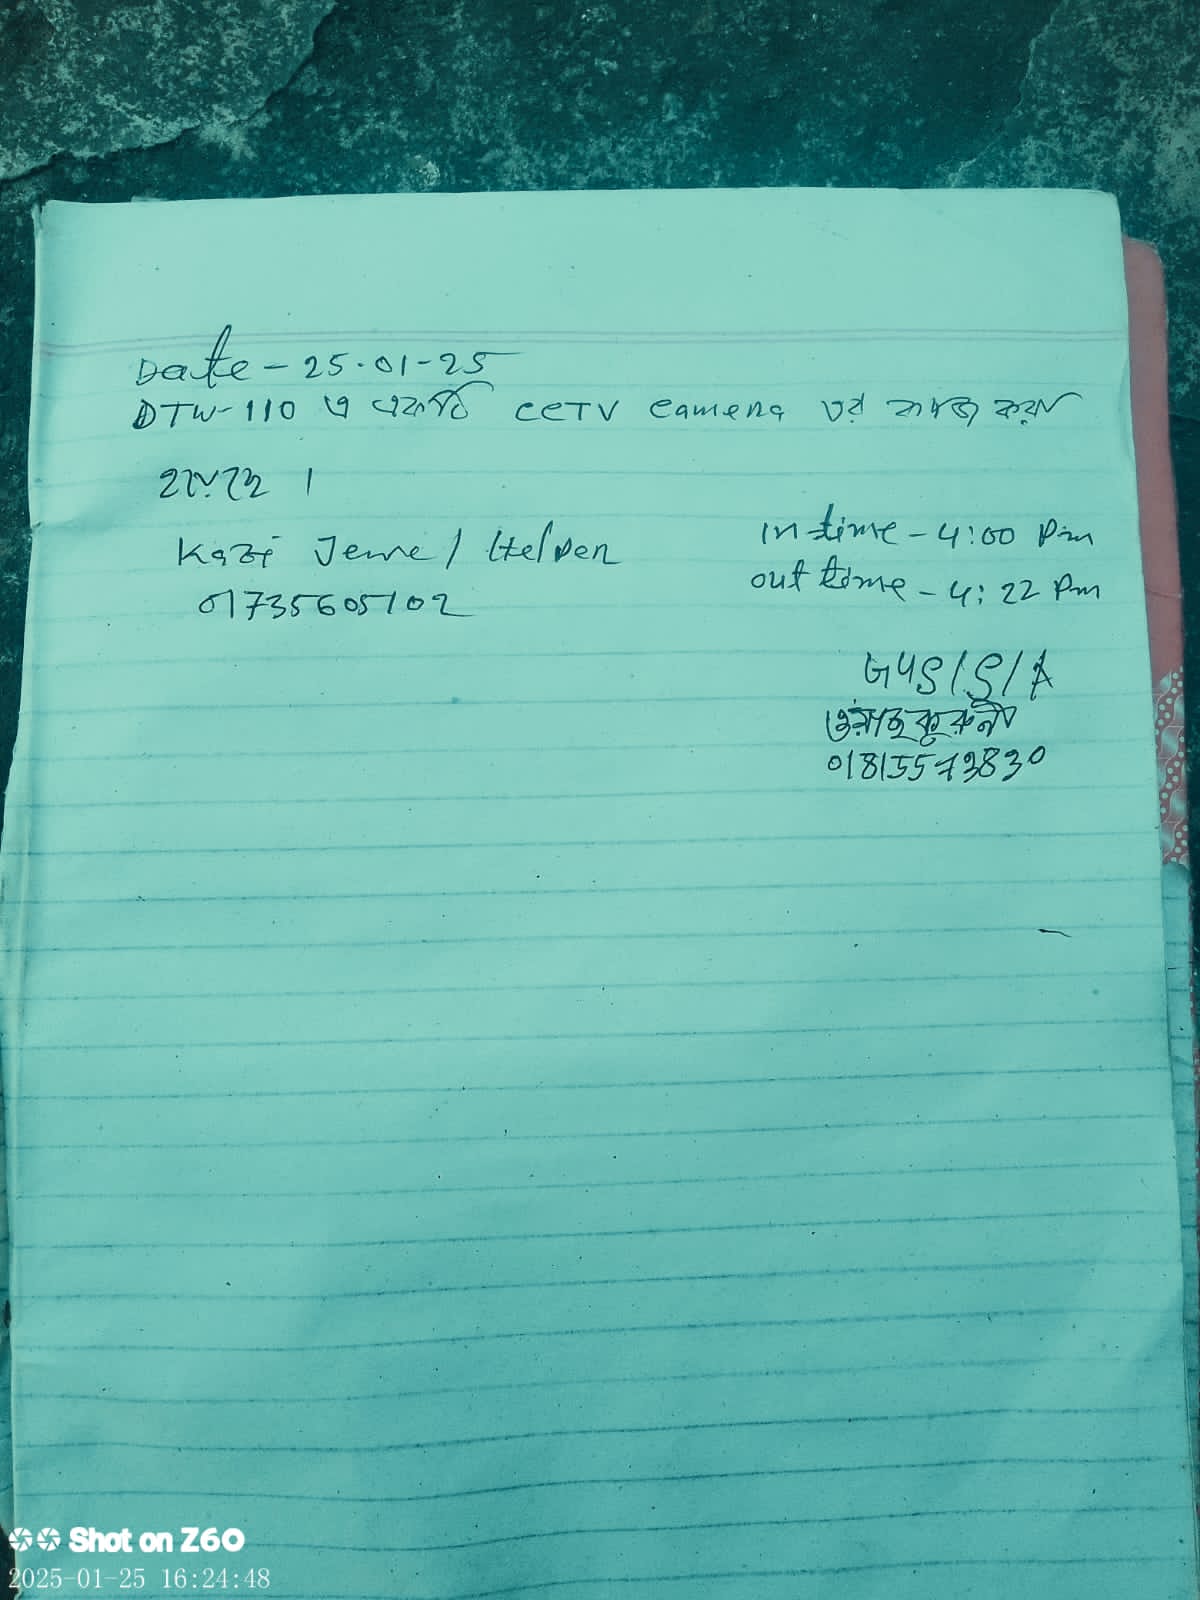 Date - 25-01-25
DTW-110 এ একটি CCTV Camera এর কাজ করা
হয়েছে ।
Kazi Jewel / Helper
01735605102
In time - 4:00 Pm
out time - 4:22 Pm
G4S/S/A
ওয়াছকুরুনী
01815573830
Shot on Z60
2025-01-25 16:24:48